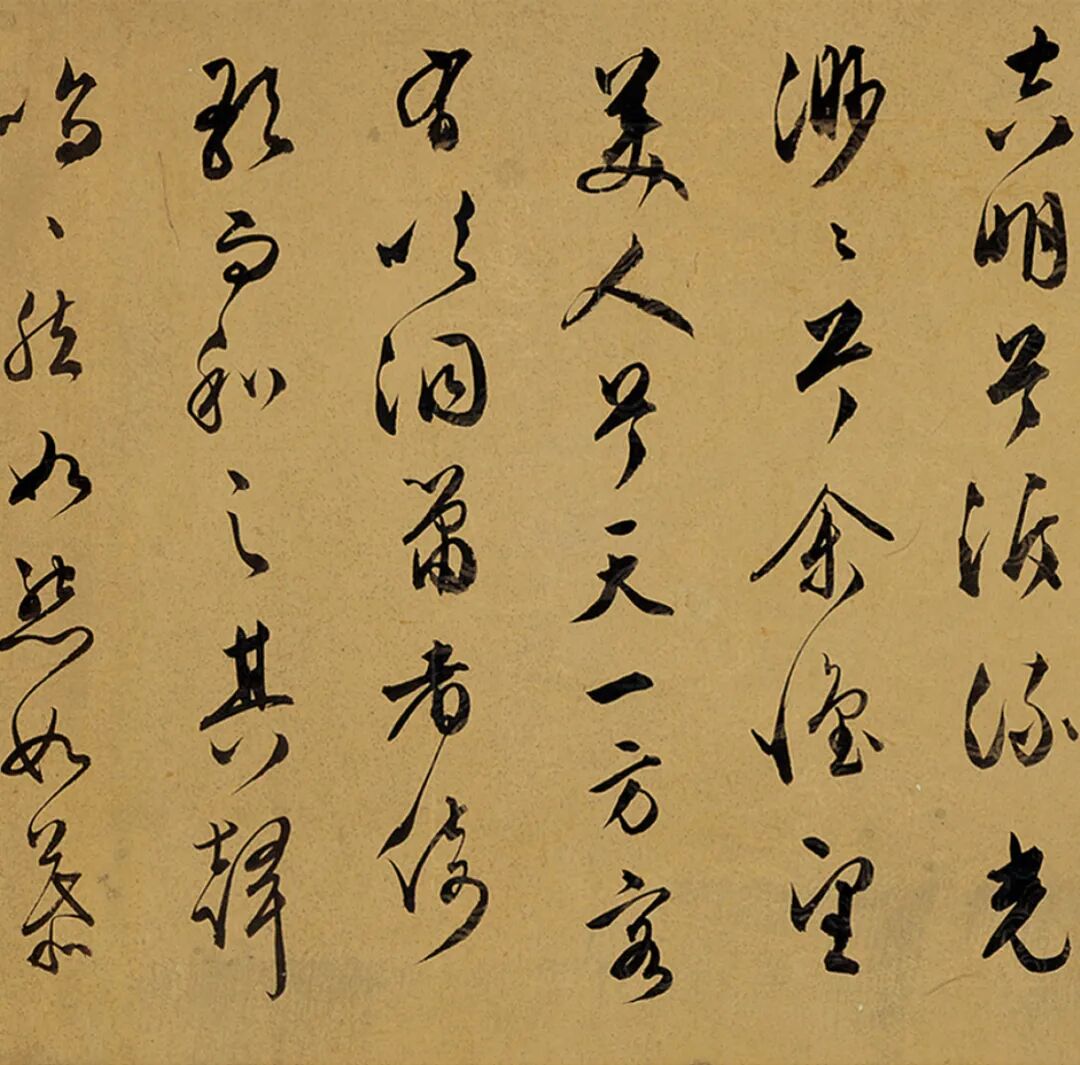 空明兮泝流光
渺〻兮余懷望
美人兮天一方客
有吹洞簫者倚
歌而和之其聲
嗚〻然如怨如慕